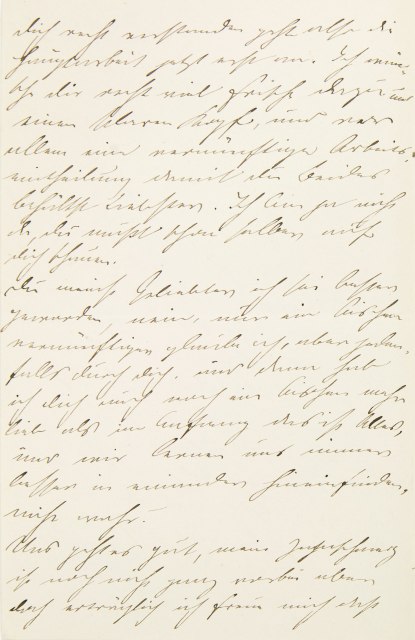 dich recht verstanden geht also die
Hauptarbeit jetzt erst an. Ich wün-
sche dir recht viel Frische dazu und
einen klaren Kopf, und vor
allem eine vernünftige Arbeits-
eintheilung damit du Beides
behältst Liebster. Ich bin ja nicht
da, du mußt schon selber auf
dich schauen.
Du meinst Geliebter ich sei besser
geworden, nein, nur ein bischen
vernünftiger glaube ich, aber jeden-
falls durch dich. und dann hab
ich dich auch noch ein bischen mehr
lieb als im Anfang das ist Alles,
und wir lernen uns immer
besser in einander hineinfinden,
nicht wahr.
Uns geht es gut, mein
ist noch nicht ganz vorbei aber
doch erträglich ich freue mich daß